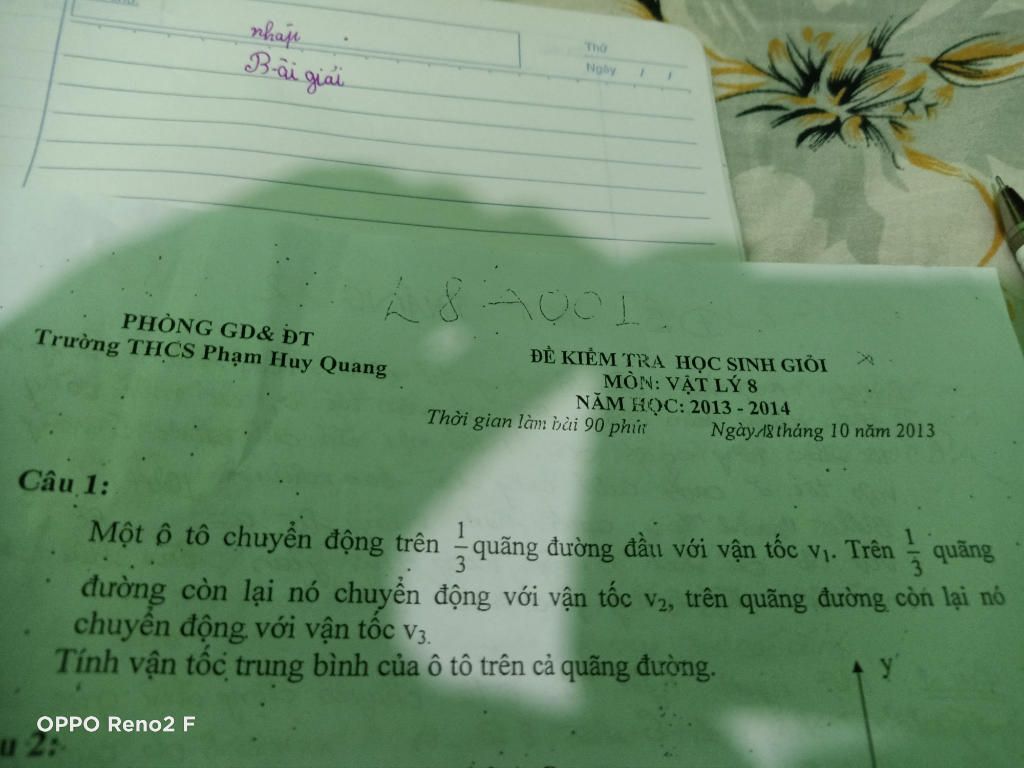 nháp
Bài giải
Thứ
Ngày / /
L 8 HỌC I
PHÒNG GD& ĐT
Trường THCS Phạm Huy Quang
ĐỀ KIỂM TRA HỌC SINH GIỎI
MÔN: VẬT LÝ 8
NĂM HỌC: 2013 - 2014
Thời gian làm bài 90 phút Ngày 18 tháng 10 năm 2013
Câu 1:
Một ô tô chuyển động trên 1/3 quãng đường đầu với vận tốc v₁. Trên 1/3 quãng
đường còn lại nó chuyển động với vận tốc v₂, trên quãng đường còn lại nó
chuyển động với vận tốc v₃.
Tính vận tốc trung bình của ô tô trên cả quãng đường.
y
u 2:
OPPO Reno2 F